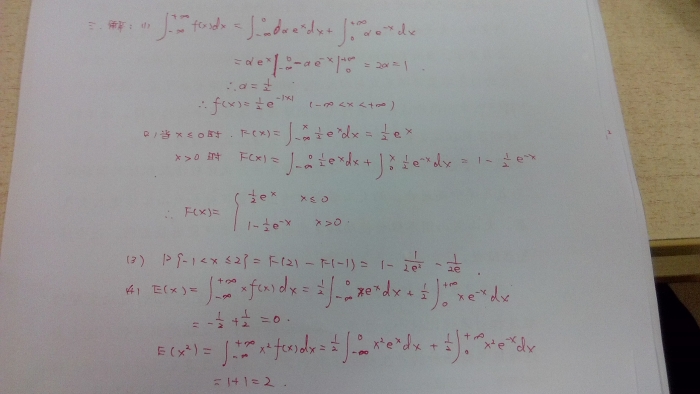 三、解：(1) ∫_{-∞}^{+∞} f(x)dx = ∫_{-∞}^{0} dαe^x dx + ∫_{0}^{+∞} αe^{-x}dx
= αe^x|_{-∞}^{0} - αe^{-x}|_{0}^{+∞} = 2α = 1.
∴ α = 1/2
∴ f(x) = 1/2 e^{-|x|} (-∞ < x < +∞)
(2) 当 x ≤ 0 时. F(x) = ∫_{-∞}^{x} 1/2 e^x dx = 1/2 e^x
x > 0 时 F(x) = ∫_{-∞}^{0} 1/2 e^x dx + ∫_{0}^{x} 1/2 e^{-x}dx = 1 - 1/2 e^{-x}
∴ F(x) = { 1/2 e^x x ≤ 0
1 - 1/2 e^{-x} x > 0.
(3) P{-1 < x ≤ 2} = F(2) - F(-1) = 1 - 1/(2e²) - 1/(2e).
(4) E(x) = ∫_{-∞}^{+∞} x f(x) dx = 1/2 ∫_{-∞}^{0} xe^x dx + 1/2 ∫_{0}^{+∞} xe^{-x}dx
= -1/2 + 1/2 = 0.
E(x²) = ∫_{-∞}^{+∞} x² f(x)dx = 1/2 ∫_{-∞}^{0} x²e^x dx + 1/2 ∫_{0}^{+∞} x²e^{-x}dx
= 1 + 1 = 2.